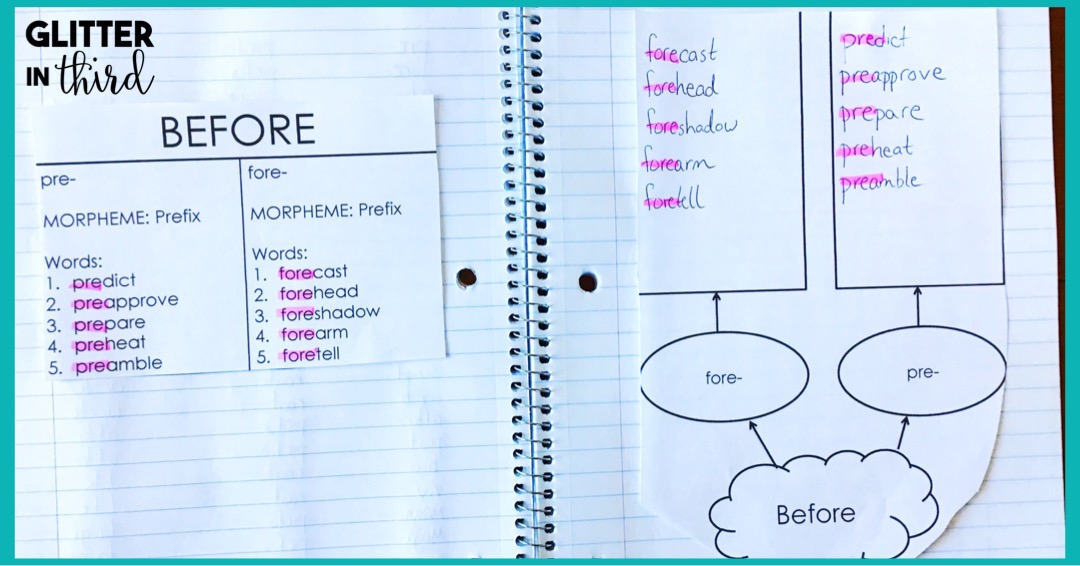 GLITTER
IN third
BEFORE
pre-
MORPHEME: Prefix
Words:
1. predict
2. preapprove
3. prepare
4. preheat
5. preamble
fore-
MORPHEME: Prefix
Words:
1. forecast
2. forehead
3. foreshadow
4. forearm
5. foretell
forecast
forehead
foreshadow
forearm
foretell
predict
preapprove
prepare
preheat
preamble
fore-
pre-
Before